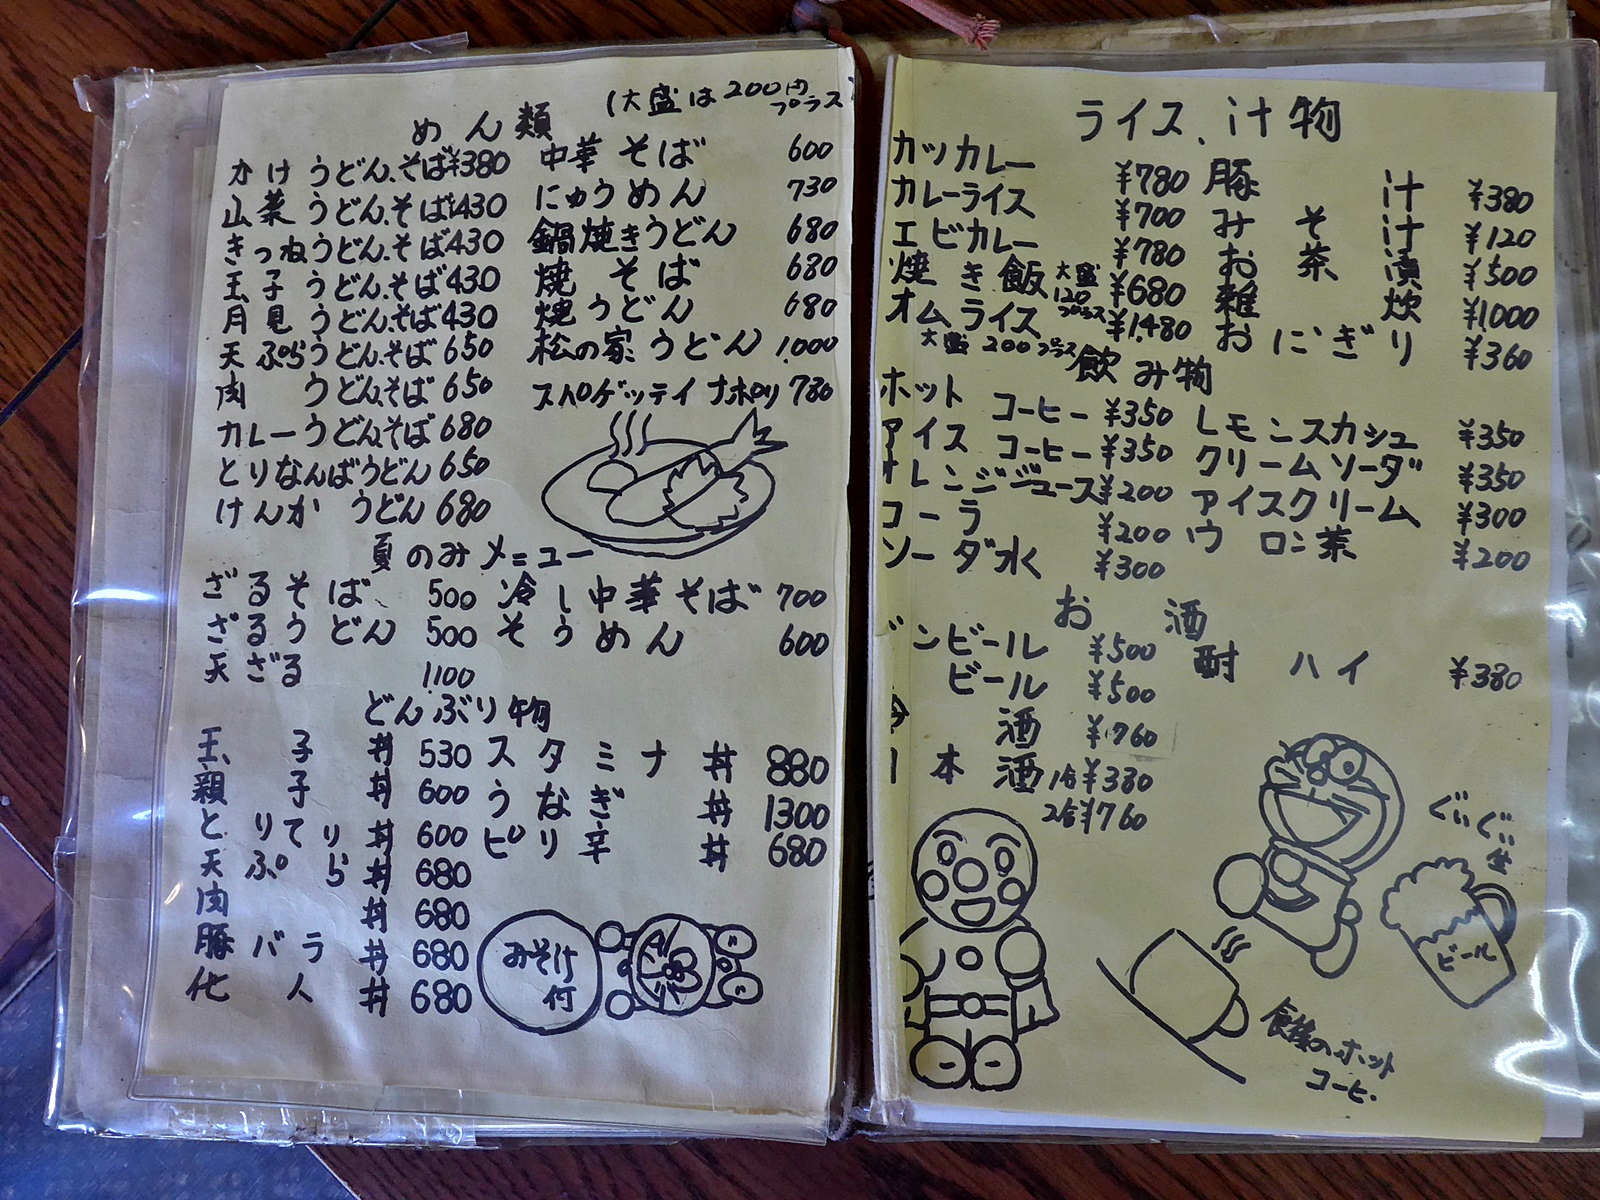 めん類 (大盛は200円プラス
かけうどん.そば ¥380
山菜うどん.そば ¥430
きつねうどん.そば 430
玉子うどん.そば 430
月見うどん.そば 430
天ぷらうどん.そば 650
肉うどん.そば 650
カレーうどん.そば 680
とりなんばうどん 650
けんかうどん 680
中華そば 600
にゅうめん 730
鍋焼きうどん 680
焼そば 680
焼うどん 680
松の家うどん 1,000
スパゲッティナポリ 780
夏のみメニュー
ざるそば 500
ざるうどん 500
天ざる 1100
冷し中華そば 700
そうめん 600
どんぶり物
玉子丼 530
親子丼 600
とりてり丼 600
天ぷら丼 680
肉丼 680
豚バラ丼 680
他人丼 680
スタミナ丼 880
うなぎ丼 1300
ピリ辛丼 680
みそ汁付
ライス、汁物
カツカレー ¥780
カレーライス ¥700
エビカレー ¥780
焼き飯 大盛120プラス ¥680
オムライス ¥1,480
大盛200プラス
豚汁 ¥380
みそ汁 ¥120
お茶漬 ¥500
雑炊 ¥1000
おにぎり ¥360
飲み物
ホットコーヒー ¥350
アイスコーヒー ¥350
オレンジジュース ¥200
コーラ ¥200
ソーダ水 ¥300
レモンスカシュ ¥350
クリームソーダ ¥350
アイスクリーム ¥300
ウロン茶 ¥200
お酒
ンビール ¥500
ビール ¥500
酒 ¥760
本酒 1合 ¥380
2合 ¥760
酎ハイ ¥380
ぐいぐい
ビール
食後のホット
コーヒ.